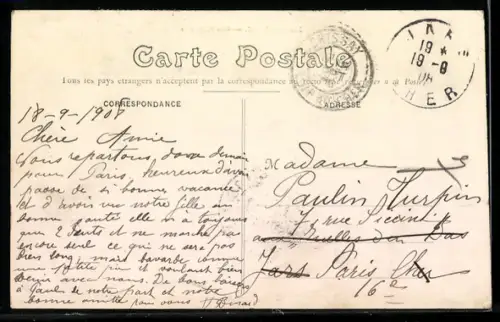 Carte Postale
Tous les pays étrangers n'acceptent pas la correspondance au recto
CORRESPONDANCE
ADRESSE
18-9-1908
Chère Amie
Nous repartons, demain
pour Paris, heureux d'avoir
passé de si bonnes vacances
et d'avoir vu notre fille en
bonne santé elle n'a toujours
que 2 dents et ne marche pas
encore seule ce qui ne sera pas
bien long, mais bavarde comme
une petite pie et voulant bien
venir avec nous. De bons baisers
à Paule de notre part et notre
bonne amitié pour vous
Madame
Paulin Turpin
7 rue
Bas
Jars Paris Cher
16e
JARS
19
19-9
08
CHER